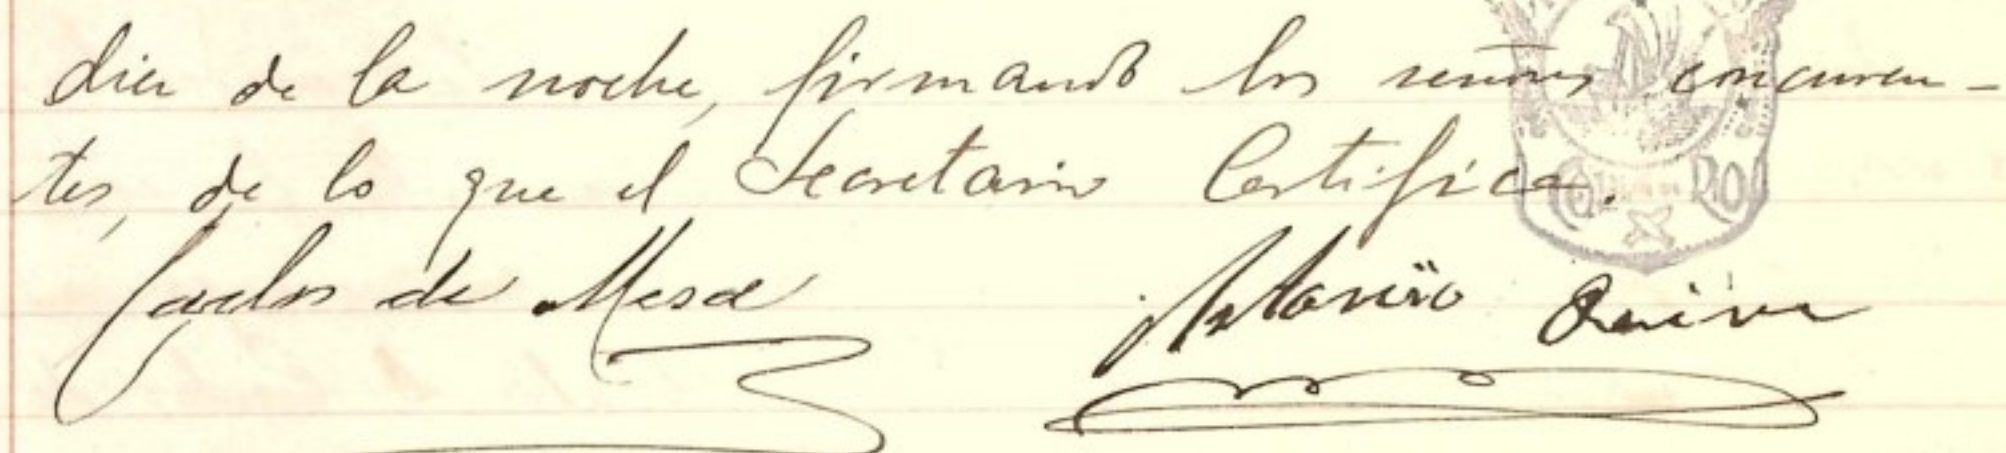 diez de la noche, firmando los señores concurren-
tes, de lo que el Secretario Certifica.
Carlos de Mesa Antonio